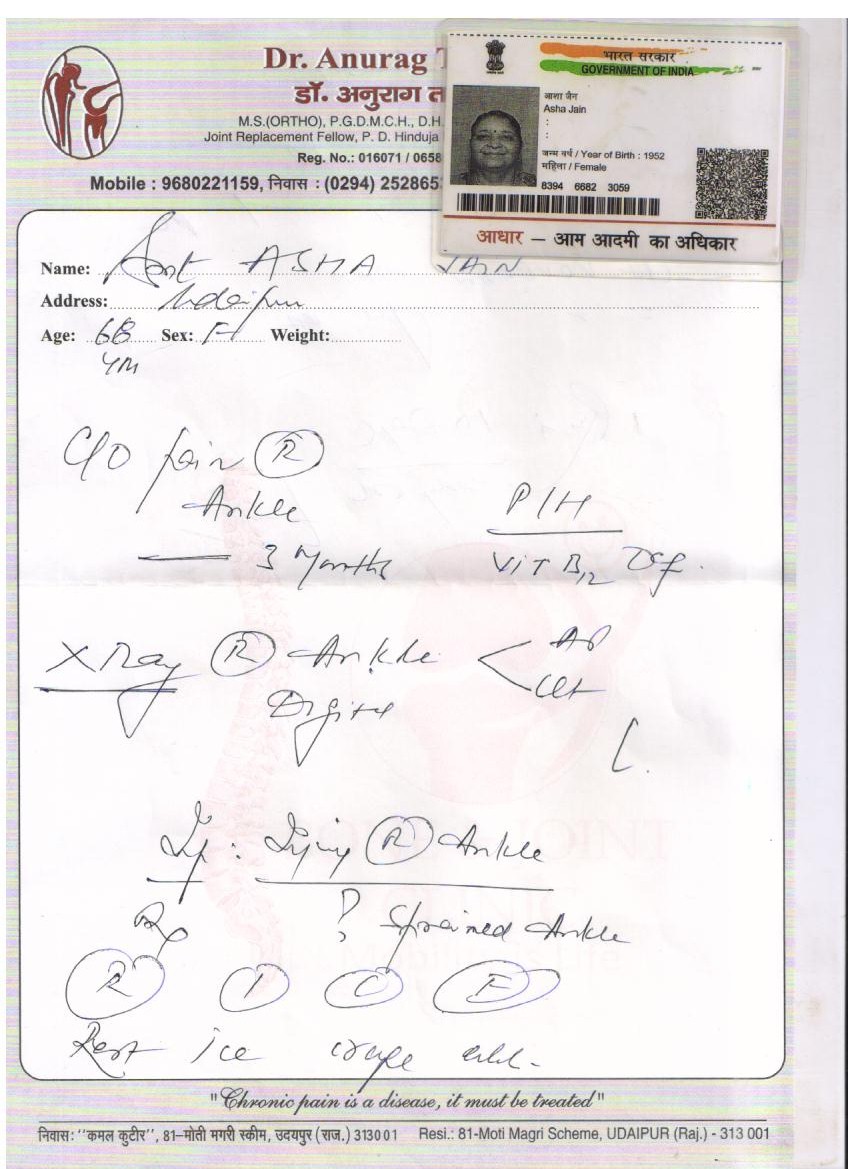 Dr. Anurag
डॉ. अनुराग त
M.S.(ORTHO), P.G.D.M.C.H., D.H.
Joint Replacement Fellow, P. D. Hinduja
Reg. No.: 016071 / 0658
Mobile : 9680221159, निवास : (0294) 252865
भारत सरकार
GOVERNMENT OF INDIA
आशा जैन
Asha Jain
:
:
जन्म वर्ष / Year of Birth : 1952
महिला / Female
8394 6682 3059
आधार – आम आदमी का अधिकार
Name: ASHA JAIN
Address: Udaipur
Age: 68 Sex: F Weight:
C/O pain R
Ankle
3 Months
P/H
VIT B12 Def.
X Ray R Ankle
AP
Digital
Ankle
Rx ? Sprained Ankle
R I C E
Rest ice crape
"Chronic pain is a disease, it must be treated"
निवास: ''कमल कुटीर'', 81–मोती मगरी स्कीम, उदयपुर (राज.) 313001 Resi.: 81-Moti Magri Scheme, UDAIPUR (Raj.) - 313 001